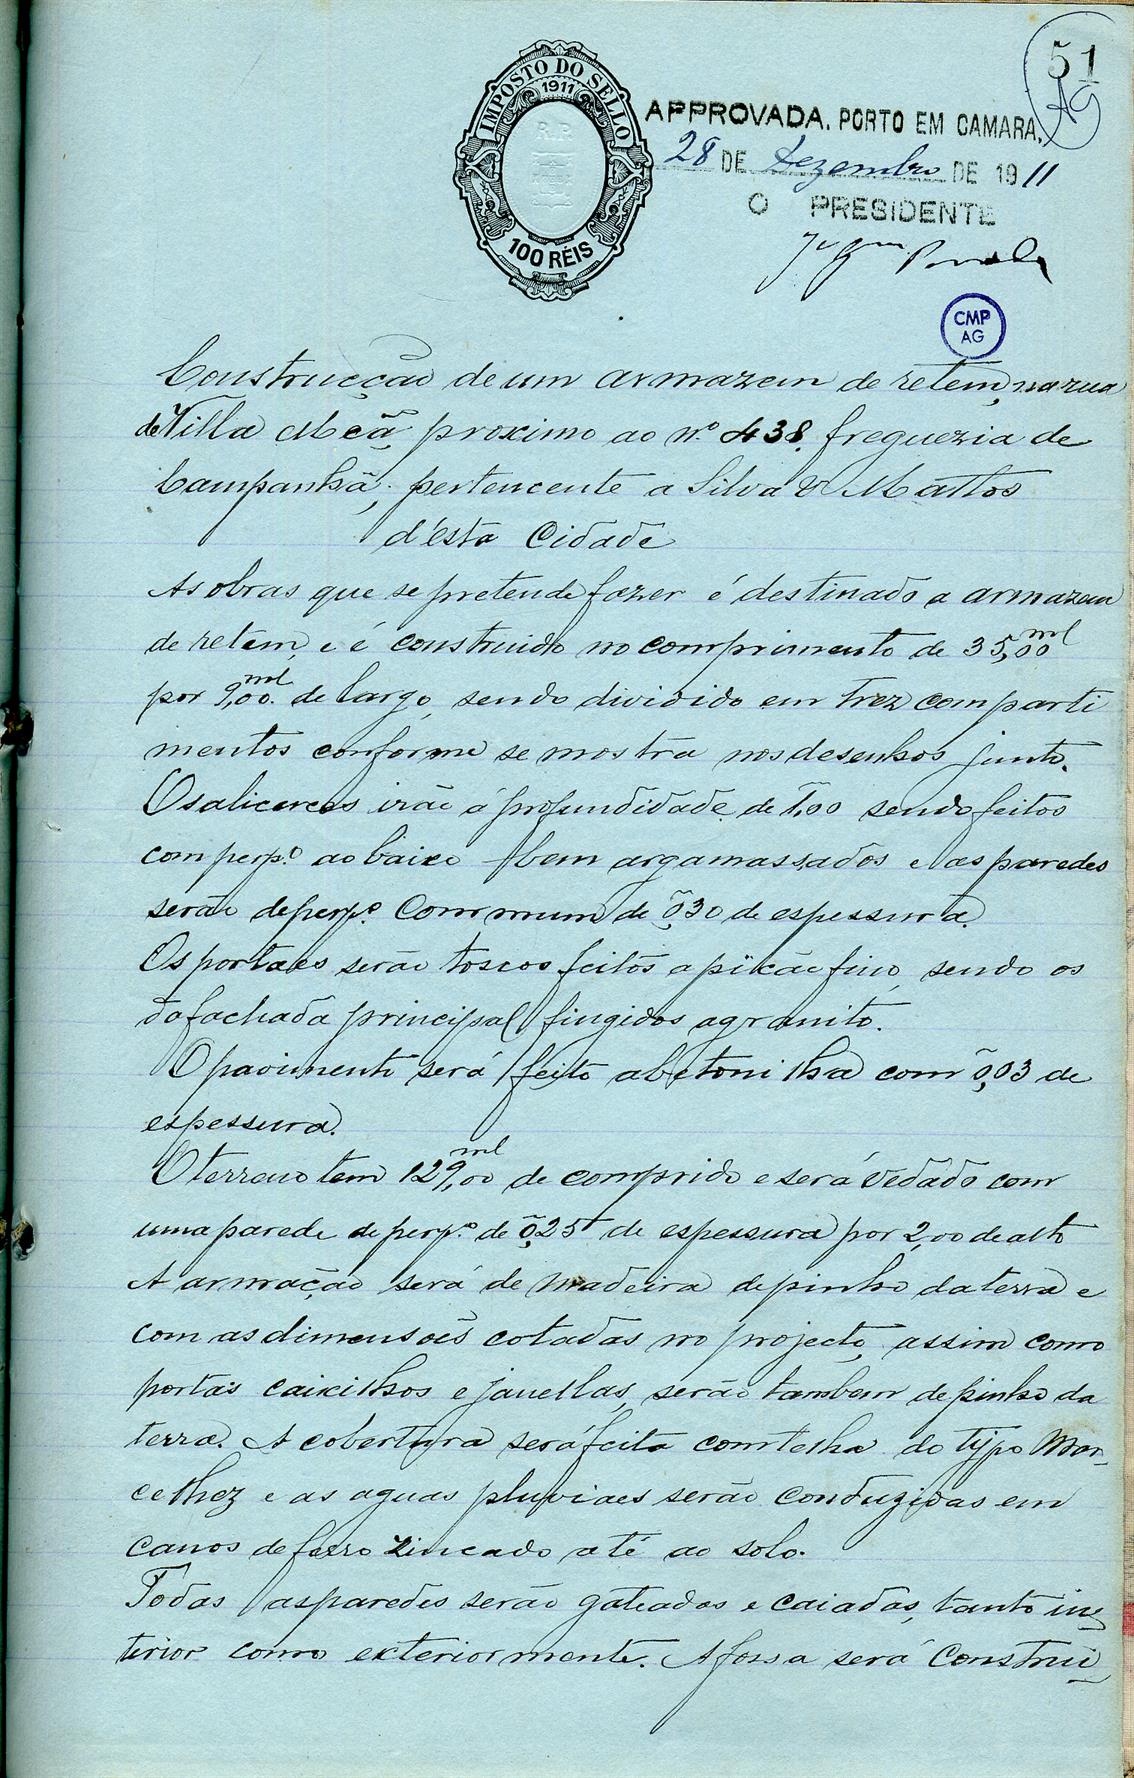 51
AG
IMPOSTO DO SELLO
1911
R.P.
100 RÉIS
APPROVADA. PORTO EM CAMARA,
28 DE Dezembro DE 1911
O PRESIDENTE
CMP
AG
Construcção de um armazem de retem, na rua
de Villa Meã proximo ao nº 438, freguezia de
Campanhã, pertencente a Silva & Mattos
d'ésta Cidade
As obras que se pretende fazer é destinado a armazem
de retem, e é construido no comprimento de 35,00 ml
por 9,00 ml de largo, sendo dividido em trez comparti
mentos conforme se mostra nos desenhos junto.
Os alicerces irão á profundidade de 1,00 sendo feitos
com perpº ao baixo bem argamassados e as paredes
serão de perpº Commum de 0,30 de espessura.
Os portaes serão toscos feitos a picão fino, sendo os
da fachada principal fingidos a granito.
O pavimento será feito a betonilha com 0,03 de
espessura.
O terreno tem 129,00 ml de comprido e será vedado com
uma parede de perpº de 0,25 de espessura por 2,00 de alto
A armação será de madeira de pinho da terra e
com as dimensões cotadas no projecto, assim como
portas caixilhos e janellas, serão tambem de pinho da
terra. A cobertura será feita com telha do typo Mar-
celhez e as aguas pluviaes serão conduzidas em
canos de ferro zincado até ao solo.
Todas as paredes serão gateados e caiadas, tanto in-
terior como exteriormente. A fossa será Construi-